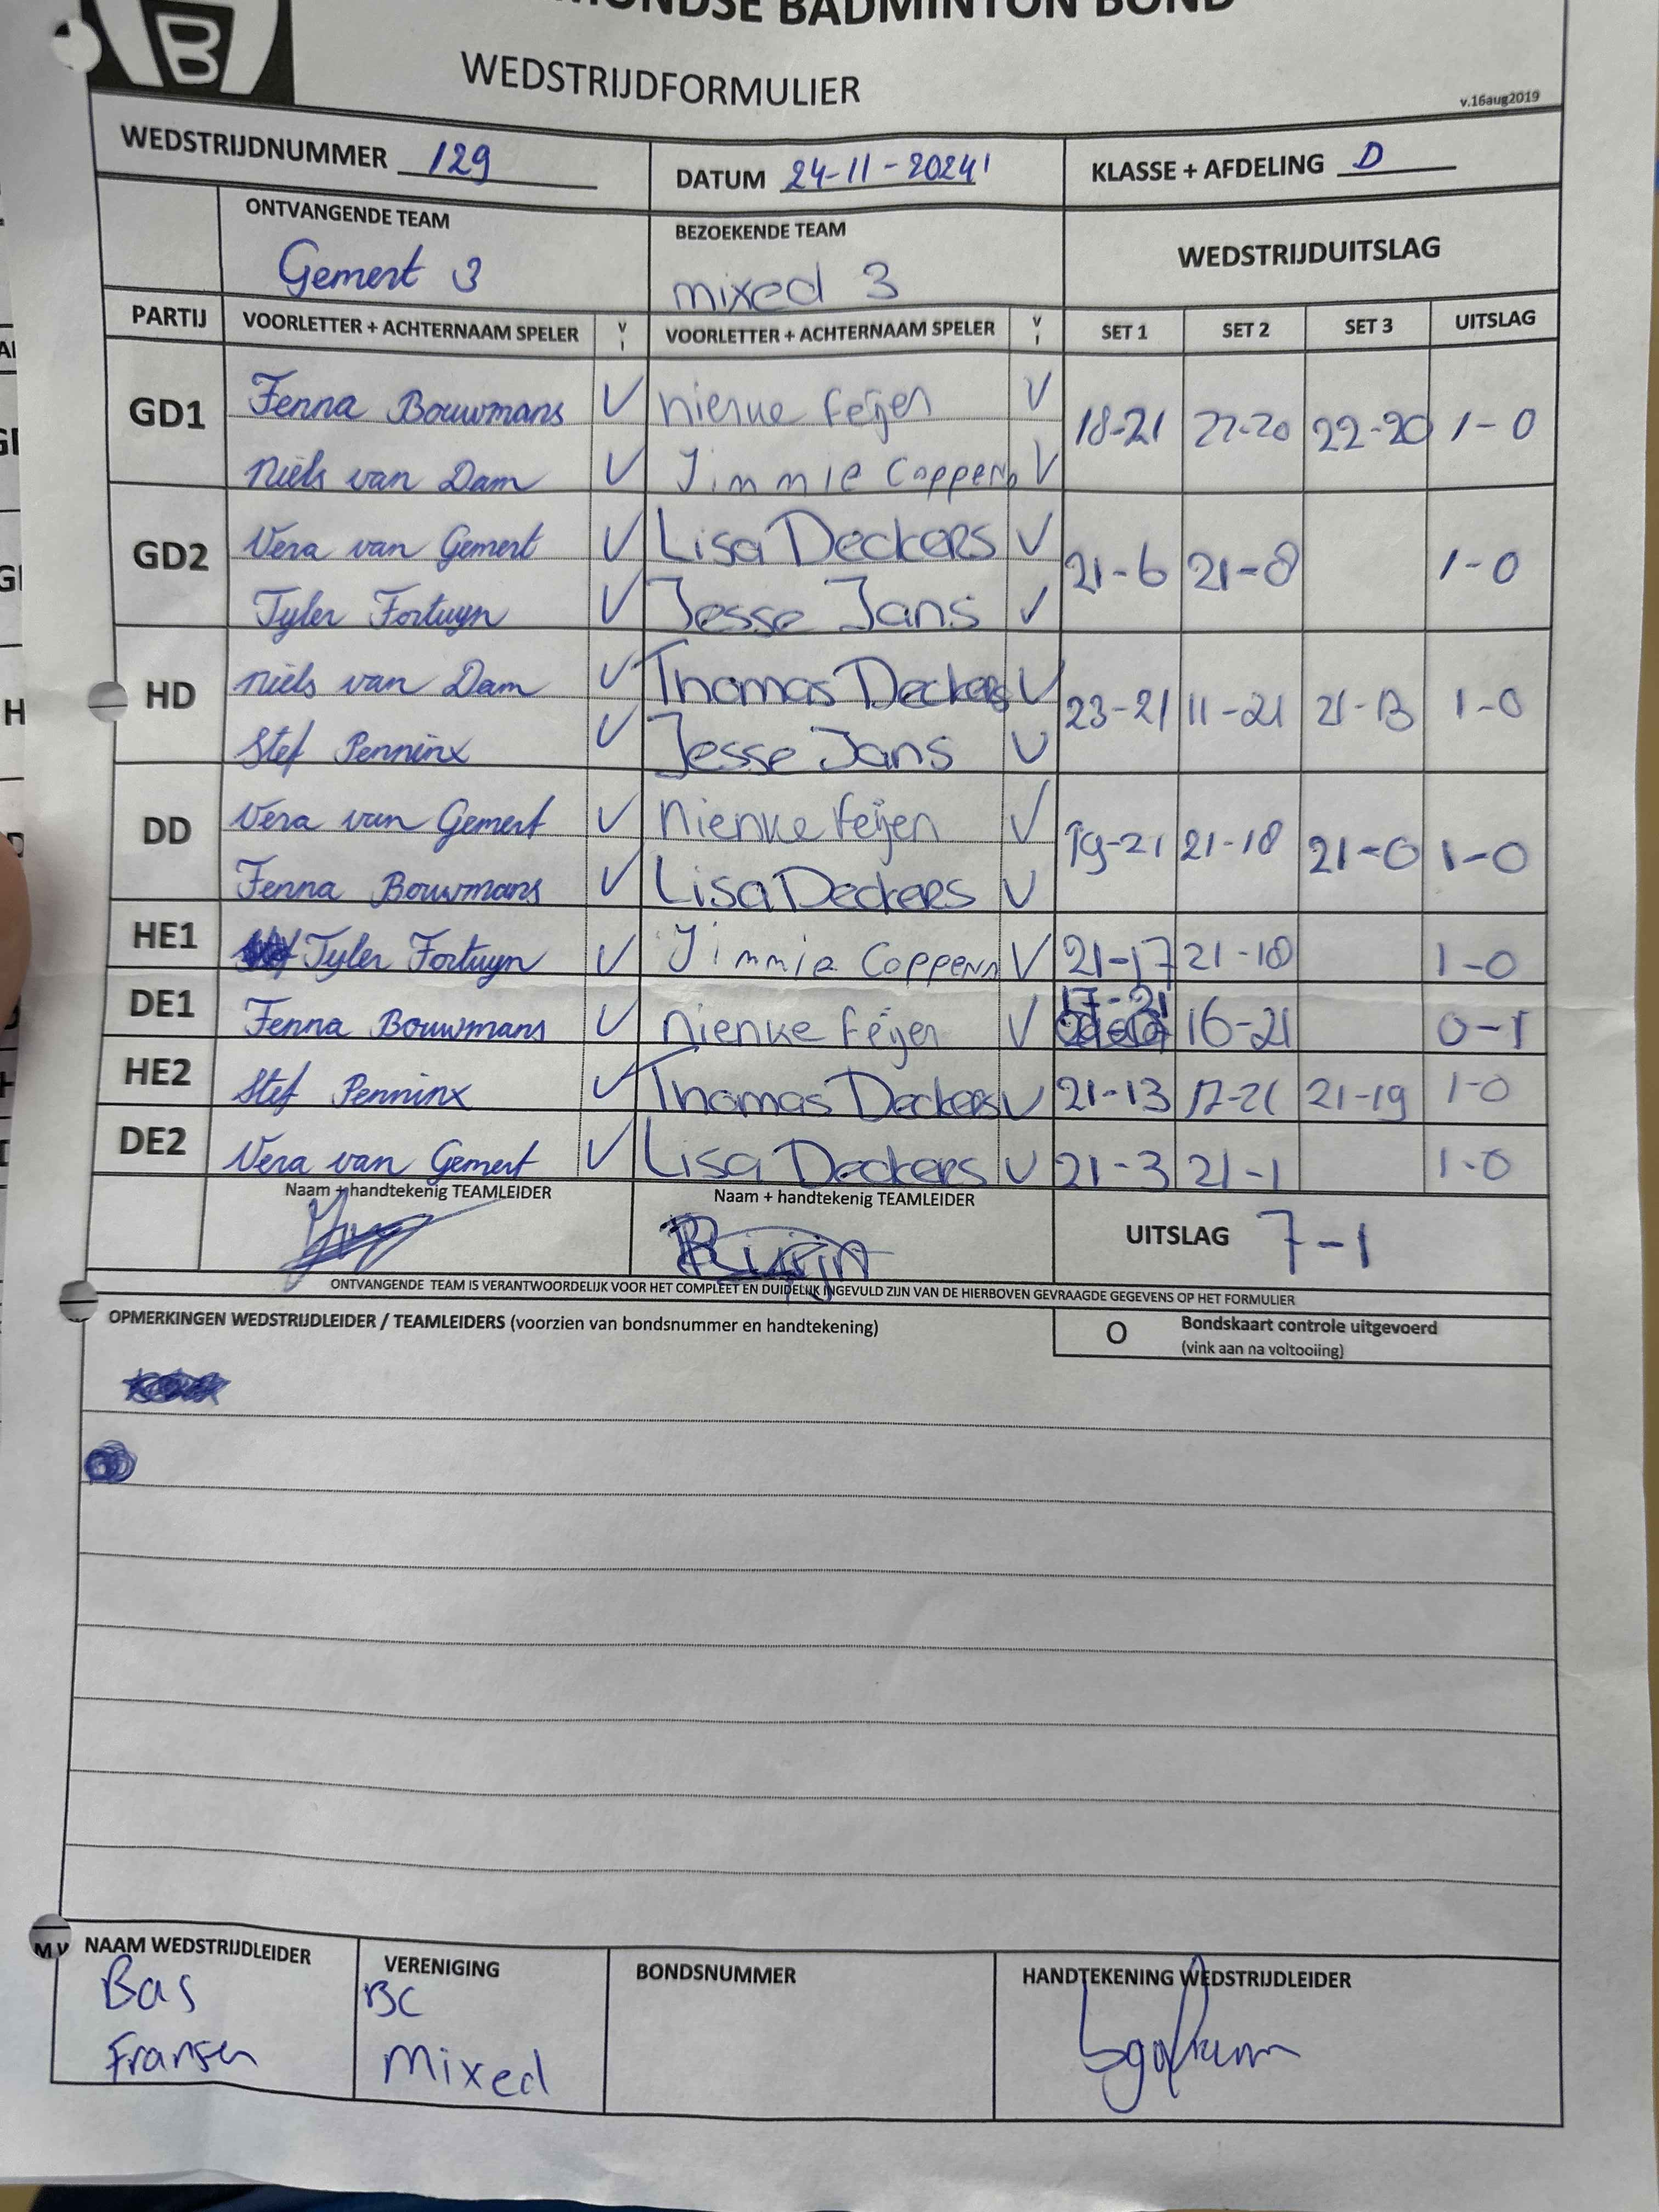 BADMINTON BOND
B
WEDSTRIJDFORMULIER
v.16aug2019
WEDSTRIJDNUMMER 129 DATUM 24-11-2024 KLASSE + AFDELING D
ONTVANGENDE TEAM BEZOEKENDE TEAM WEDSTRIJDUITSLAG
Gemert 3 mixed 3
PARTIJ VOORLETTER + ACHTERNAAM SPELER V I VOORLETTER + ACHTERNAAM SPELER V I SET 1 SET 2 SET 3 UITSLAG
GD1 Fenna Bouwmans V Nienke Feijen V 18-21 22-20 22-20 1-0
Niels van Dam V Jimmie Coppens V
GD2 Vera van Gemert V Lisa Deckers V 21-6 21-8 1-0
Tyler Fortuyn V Jesse Jans V
HD Niels van Dam V Thomas Deckers V 23-21 11-21 21-13 1-0
Stef Penninx V Jesse Jans V
DD Vera van Gemert V Nienke Feijen V 19-21 21-18 21-0 1-0
Fenna Bouwmans V Lisa Deckers V
HE1 Tyler Fortuyn V Jimmie Coppens V 21-17 21-18 1-0
DE1 Fenna Bouwmans V Nienke Feijen V 17-21 16-21 0-1
HE2 Stef Penninx V Thomas Deckers V 21-13 17-21 21-19 1-0
DE2 Vera van Gemert V Lisa Deckers V 21-3 21-1 1-0
Naam + handtekenig TEAMLEIDER Naam + handtekenig TEAMLEIDER UITSLAG 7-1
ONTVANGENDE TEAM IS VERANTWOORDELIJK VOOR HET COMPLEET EN DUIDELIJK INGEVULD ZIJN VAN DE HIERBOVEN GEVRAAGDE GEGEVENS OP HET FORMULIER
OPMERKINGEN WEDSTRIJDLEIDER / TEAMLEIDERS (voorzien van bondsnummer en handtekening) O Bondskaart controle uitgevoerd
(vink aan na voltooiing)
NAAM WEDSTRIJDLEIDER VERENIGING BONDSNUMMER HANDTEKENING WEDSTRIJDLEIDER
Bas BC
Fransen Mixed